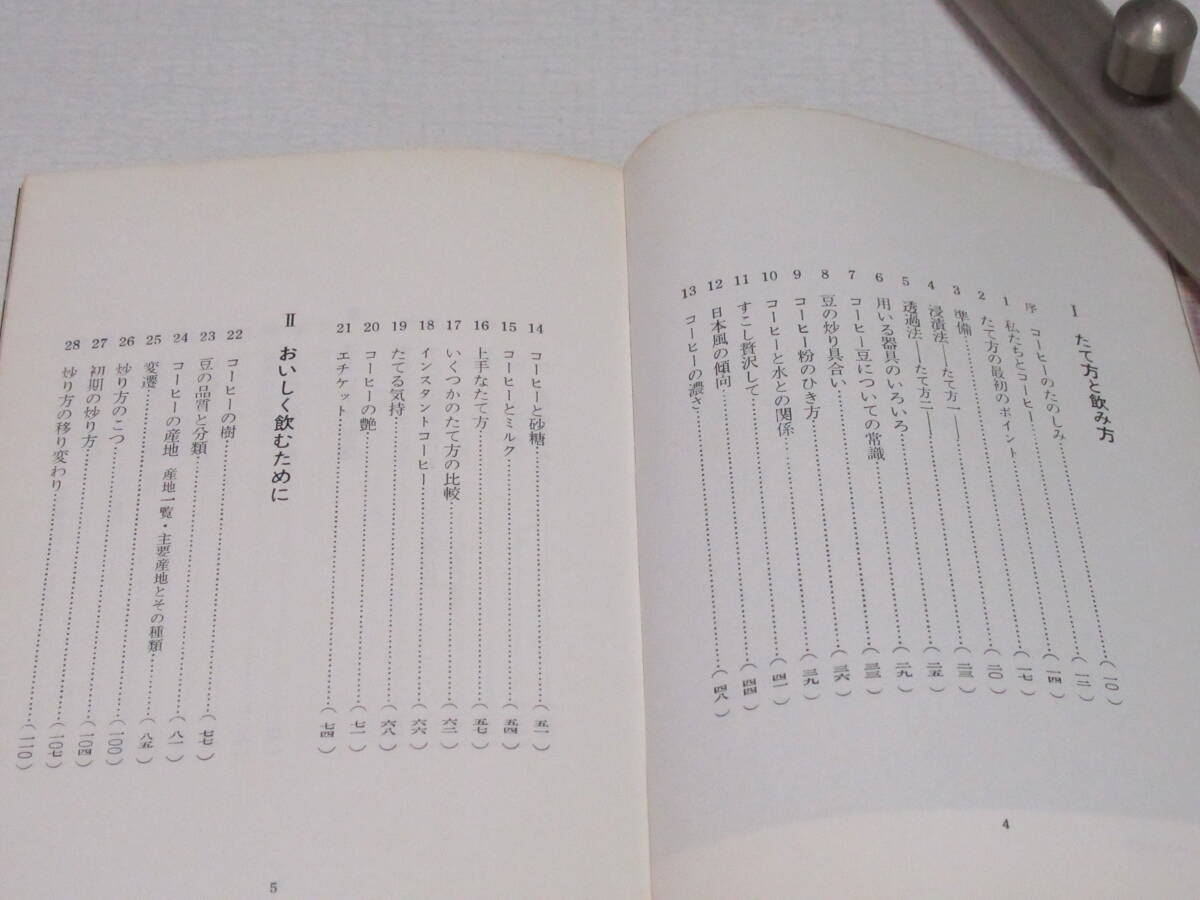 Ⅰ たて方と飲み方
序 コーヒーのたのしみ……(一〇)
1 私たちとコーヒー……(一二)
2 たて方の最初のポイント……(一四)
3 準備……(一七)
4 浸漬法──たて方一──……(二〇)
5 透過法──たて方二──……(二三)
6 用いる器具のいろいろ……(二五)
7 コーヒー豆についての常識……(二九)
8 豆の炒り具合い……(三三)
9 コーヒー粉のひき方……(三六)
10 コーヒーと水との関係……(三九)
11 すこし贅沢して……(四一)
12 日本風の傾向……(四四)
13 コーヒーの濃さ……(四八)
4
14 コーヒーと砂糖……(五一)
15 コーヒーとミルク……(五四)
16 上手なたて方……(五七)
17 いくつかのたて方の比較……(六二)
18 インスタントコーヒー……(六六)
19 たてる気持……(六八)
20 コーヒーの艶……(七一)
21 エチケット……(七四)
Ⅱ おいしく飲むために
22 コーヒーの樹……(七七)
23 豆の品質と分類……(八一)
24 コーヒーの産地 産地一覧・主要産地とその種類……(八五)
25 変遷……(一〇〇)
26 炒り方のこつ……(一〇四)
27 初期の炒り方……(一〇七)
28 炒り方の移り変わり……(一一〇)
5